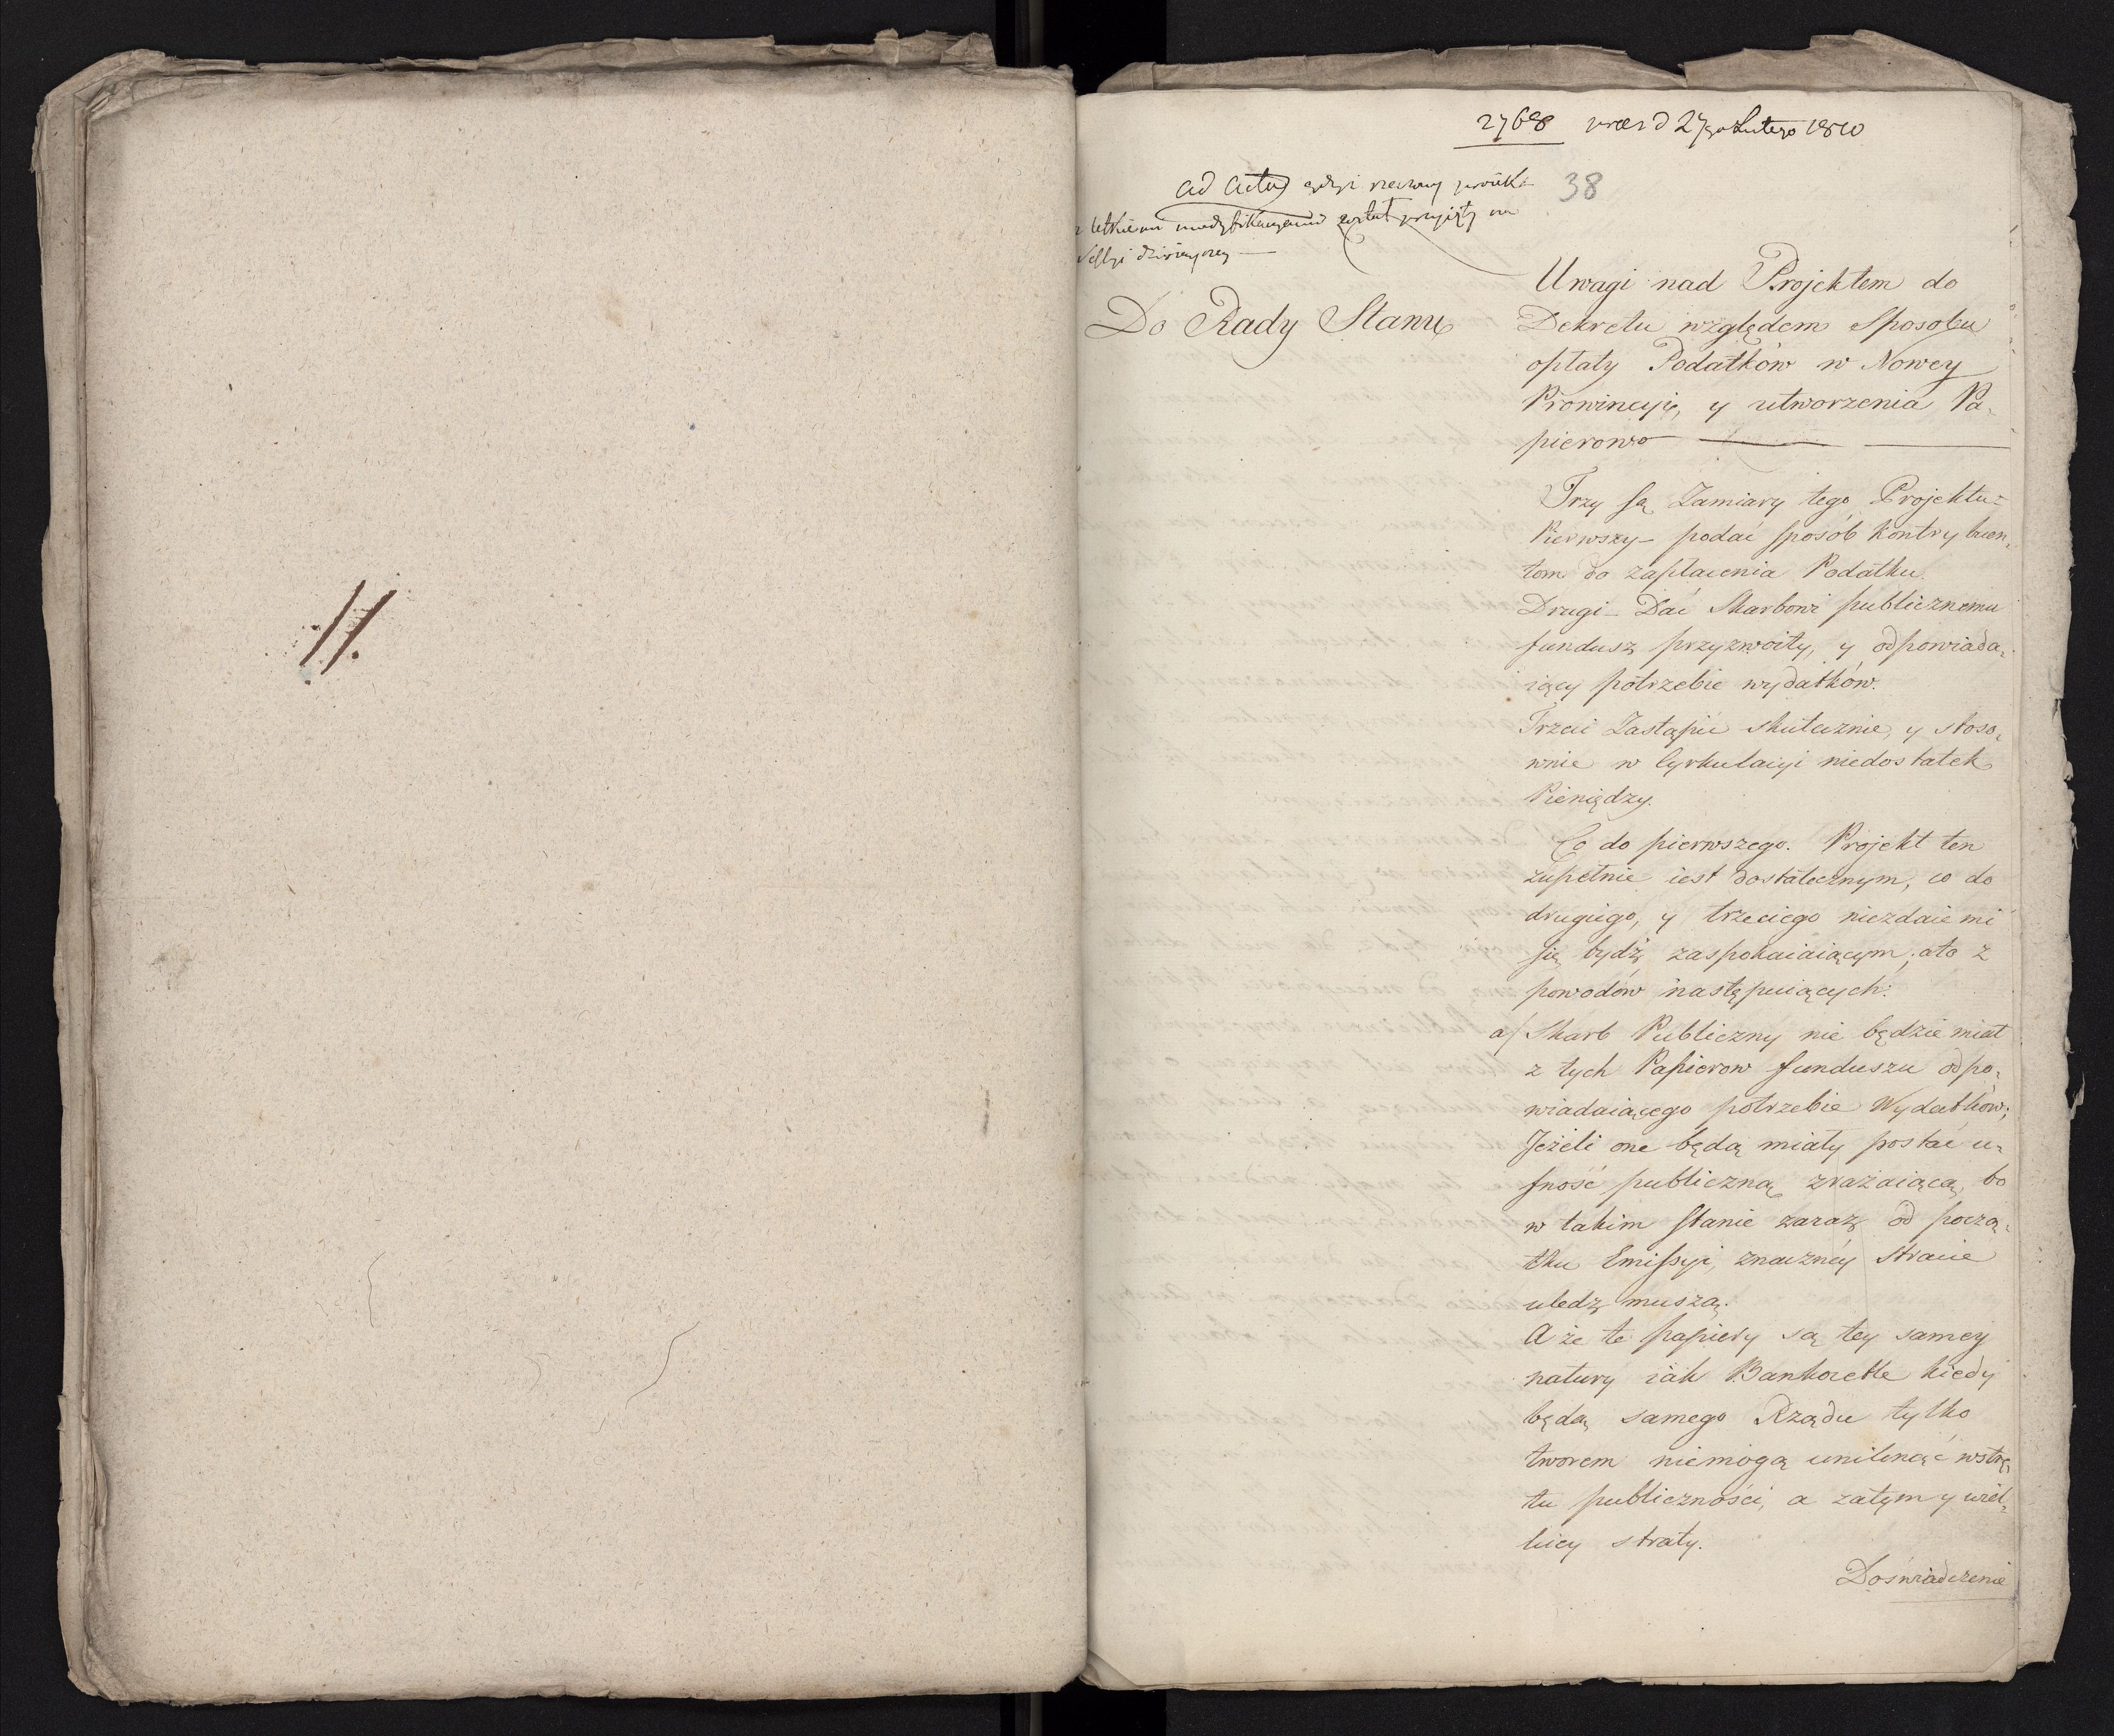 11.
2768 præs d 27go Lutego 1810
38
ad acta gdyż rzeczony proiekt
z letkiemi modyfikacyami został przyięty na
Sessyi dzisieyszey
Do Rady Stanu
Uwagi nad Projektem do
Dekretu względem Sposobu
opłaty Podatków w Nowey
Prowincyi, y utworzenia Pa-
pierow
Trzy są Zamiary tego Projektu-
Pierwszy - podać sposób Kontrybuen-
tom do zapłacenia Podatku.
Drugi - Dać Skarbowi publicznemu
fundusz przyzwoity, y odpowiada-
iący potrzebie wydatków.
Trzeci Zastąpić skutecznie, y stoso-
wnie w Cyrkulacyi niedostatek
Pieniędzy.
Co do pierwszego. Projekt ten
zupełnie iest dostatecznym, co do
drugiego, y trzeciego niezdaie mi
się bydź zaspokaiaiącym, ato z
powodów następuiących:
a/ Skarb Publiczny nie będzie miał
z tych Papierow funduszu odpo-
wiadaiącego potrzebie Wydatków;
Jeżeli one będą miały postać u-
fność publiczną zrażaiącą, bo
w takim stanie zaraz od począ-
tku Emissyi, znaczney stracie
uledz muszą.
A że te papiery są tey samey
natury iak Bankocetle kiedy
będą samego Rządu tylko
tworem niemogą uniknąć wstrę-
tu publiczności, a zatym y wiel-
kiey straty.
Doświadczenie